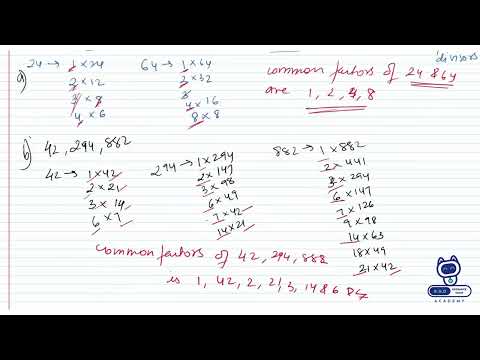 divisors
a) 24 → 1 × 24
2 × 12
3 × 8
4 × 6
64 → 1 × 64
2 × 32
4 × 16
8 × 8
common factors of 24 & 64
are 1, 2, 4, 8
b) 42, 294, 882
42 → 1 × 42
2 × 21
3 × 14
6 × 7
294 → 1 × 294
2 × 147
3 × 98
6 × 49
7 × 42
14 × 21
882 → 1 × 882
2 × 441
3 × 294
6 × 147
7 × 126
9 × 98
14 × 63
18 × 49
21 × 42
common factors of 42, 294, 882
is 1, 42, 2, 21, 3, 14 & 6
ACADEMY